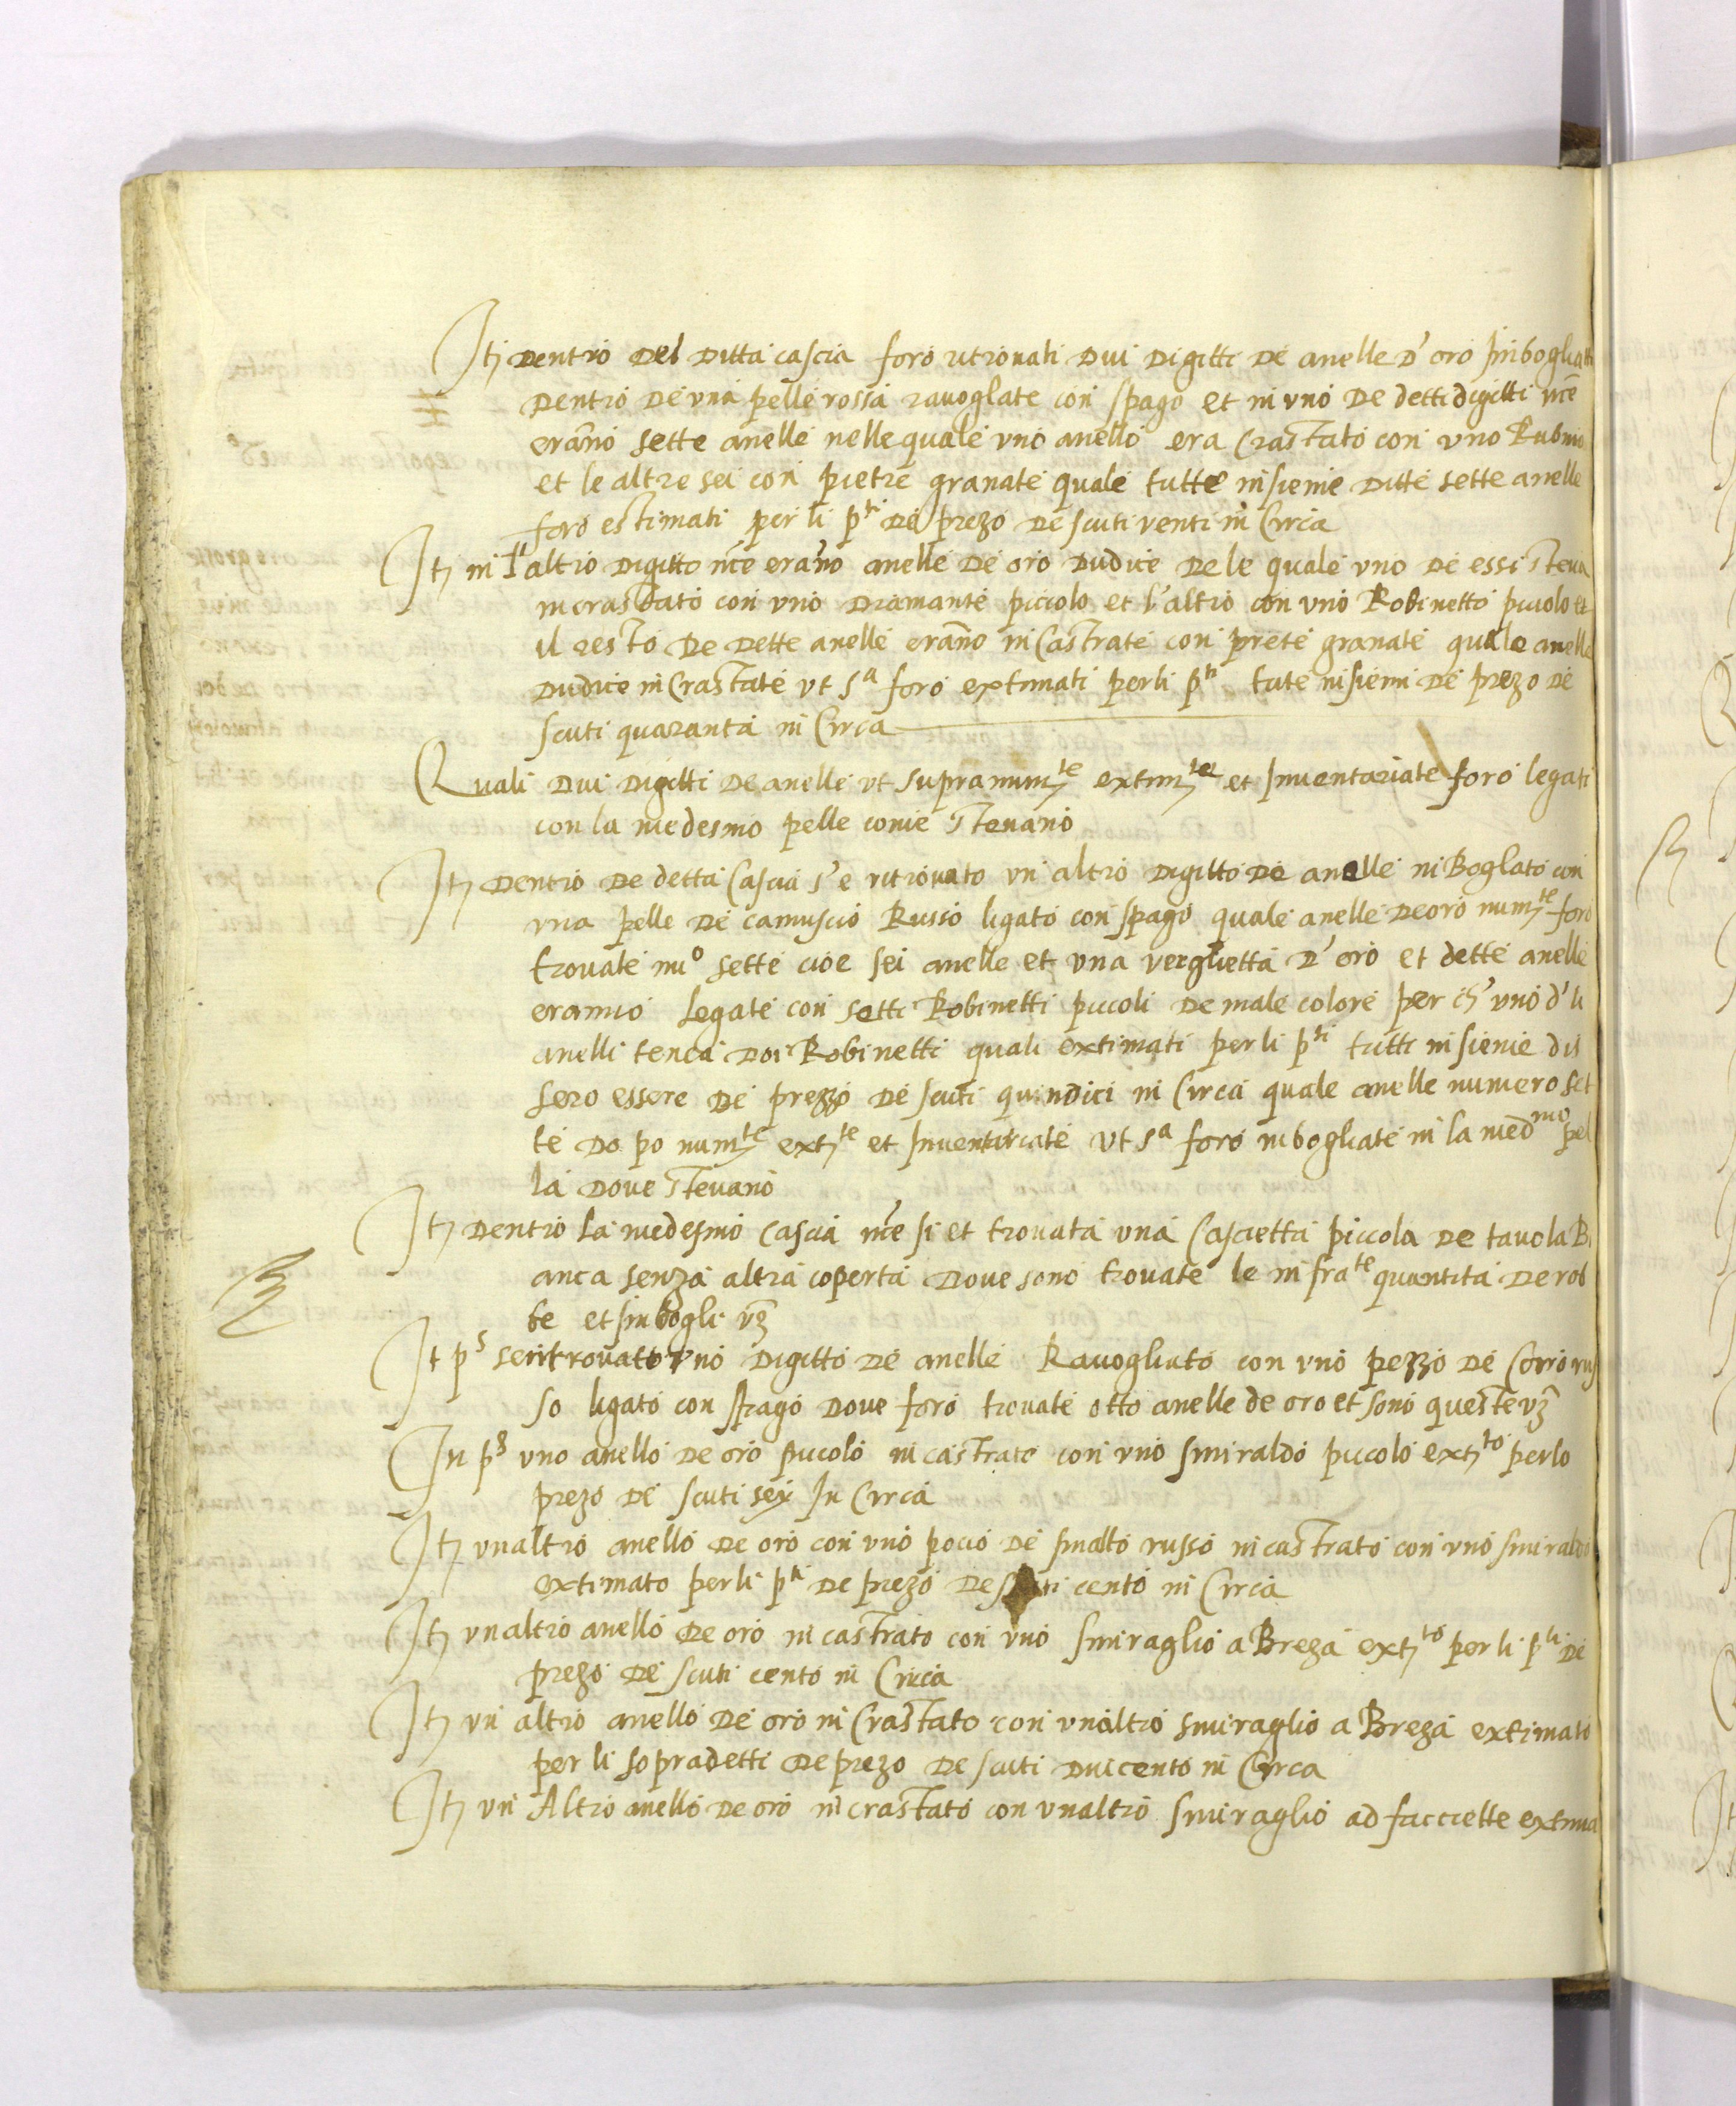 Itȷ dentro del ditta cascia foro ritrovati dui digitti de anelle d'oro inbogliati
dentro de una pelle rossa ravoglate con spago et in uno de detti digitti nce
erano sette anelle nelle quale uno anello era crastato con uno Rubino
et le altre sei con pietre granate quale tutte insieme ditte sette anelle
foro estimati per li p^ti de prezo de scuti venti in Circa
Itȷ in l'altro digitto nce erano anelle de oro dudice de le quale uno de essi steva
incrastato con uno diamante piccolo et l'altro con uno Robinetto piccolo et
il resto de dette anelle erano in Castrate con prete granate quale anelle
dudice in Crastate ut s^a foro extimati per li p^ti tute insiemi de prezo de
scuti quaranta in Circa
Quali dui digitti de anelle ut supra num^te extim^te et Inventariate foro legati
con la medesmo pelle come stevano
Itȷ dentro de detta Cascia s'e ritrovato un altro digitto de anelle in Boglato con
una pelle de camuscio Russo ligato con spago quale anelle de oro num^te foro
trovate nu^o sette cioe sei anelle et una verghetta d'oro et dette anelle
eranno legate con setti Robinetti piccoli de male colore per ch' uno d'li
anelli tenea doi Robinetti quali extimati per li p^ti tutti insieme dis
sero essere de prezzo de scuti quindici in Circa quale anelle numero set
te do po num^te ext^te et Inventariate ut s^a foro inbogliate in la med^mo pel
la dove stevano
Itȷ dentro la medesmo cascia nce si et trovata una Cascietta piccola de tavola Bi
anca senza altra coperta dove sono trovate le infra^te quantita de rob
be et sinbogli vz
It p^s se ritrovatto uno digitto de anelle Ravogliuto con uno pezzo de Corro rus
so ligato con spago dove foro trovate otto anelle de oro et sono queste vz
In p^s uno anello de oro piccolo in castrato con uno smiraldo piccolo ext^to per lo
prezo de scuti sey In Circa
Itȷ un altro anello de oro con uno poco de smalto russo in castrato con uno smiraldo
extimato per li p^ti de prezo de scuti cento in Circa
Itȷ un altro anello de oro in castrato con uno smiraglio a Breza ext^to per li p^ti de
prezo de scuti cento in Circa
Itȷ un altro anello de oro in Crastato con un altro smiraglio a Breza extimato
per li sopradetti de prezo de scuti duicento in Circa
Itȷ un Altro anello de oro in crastato con un altro smiraglio ad facciette extima